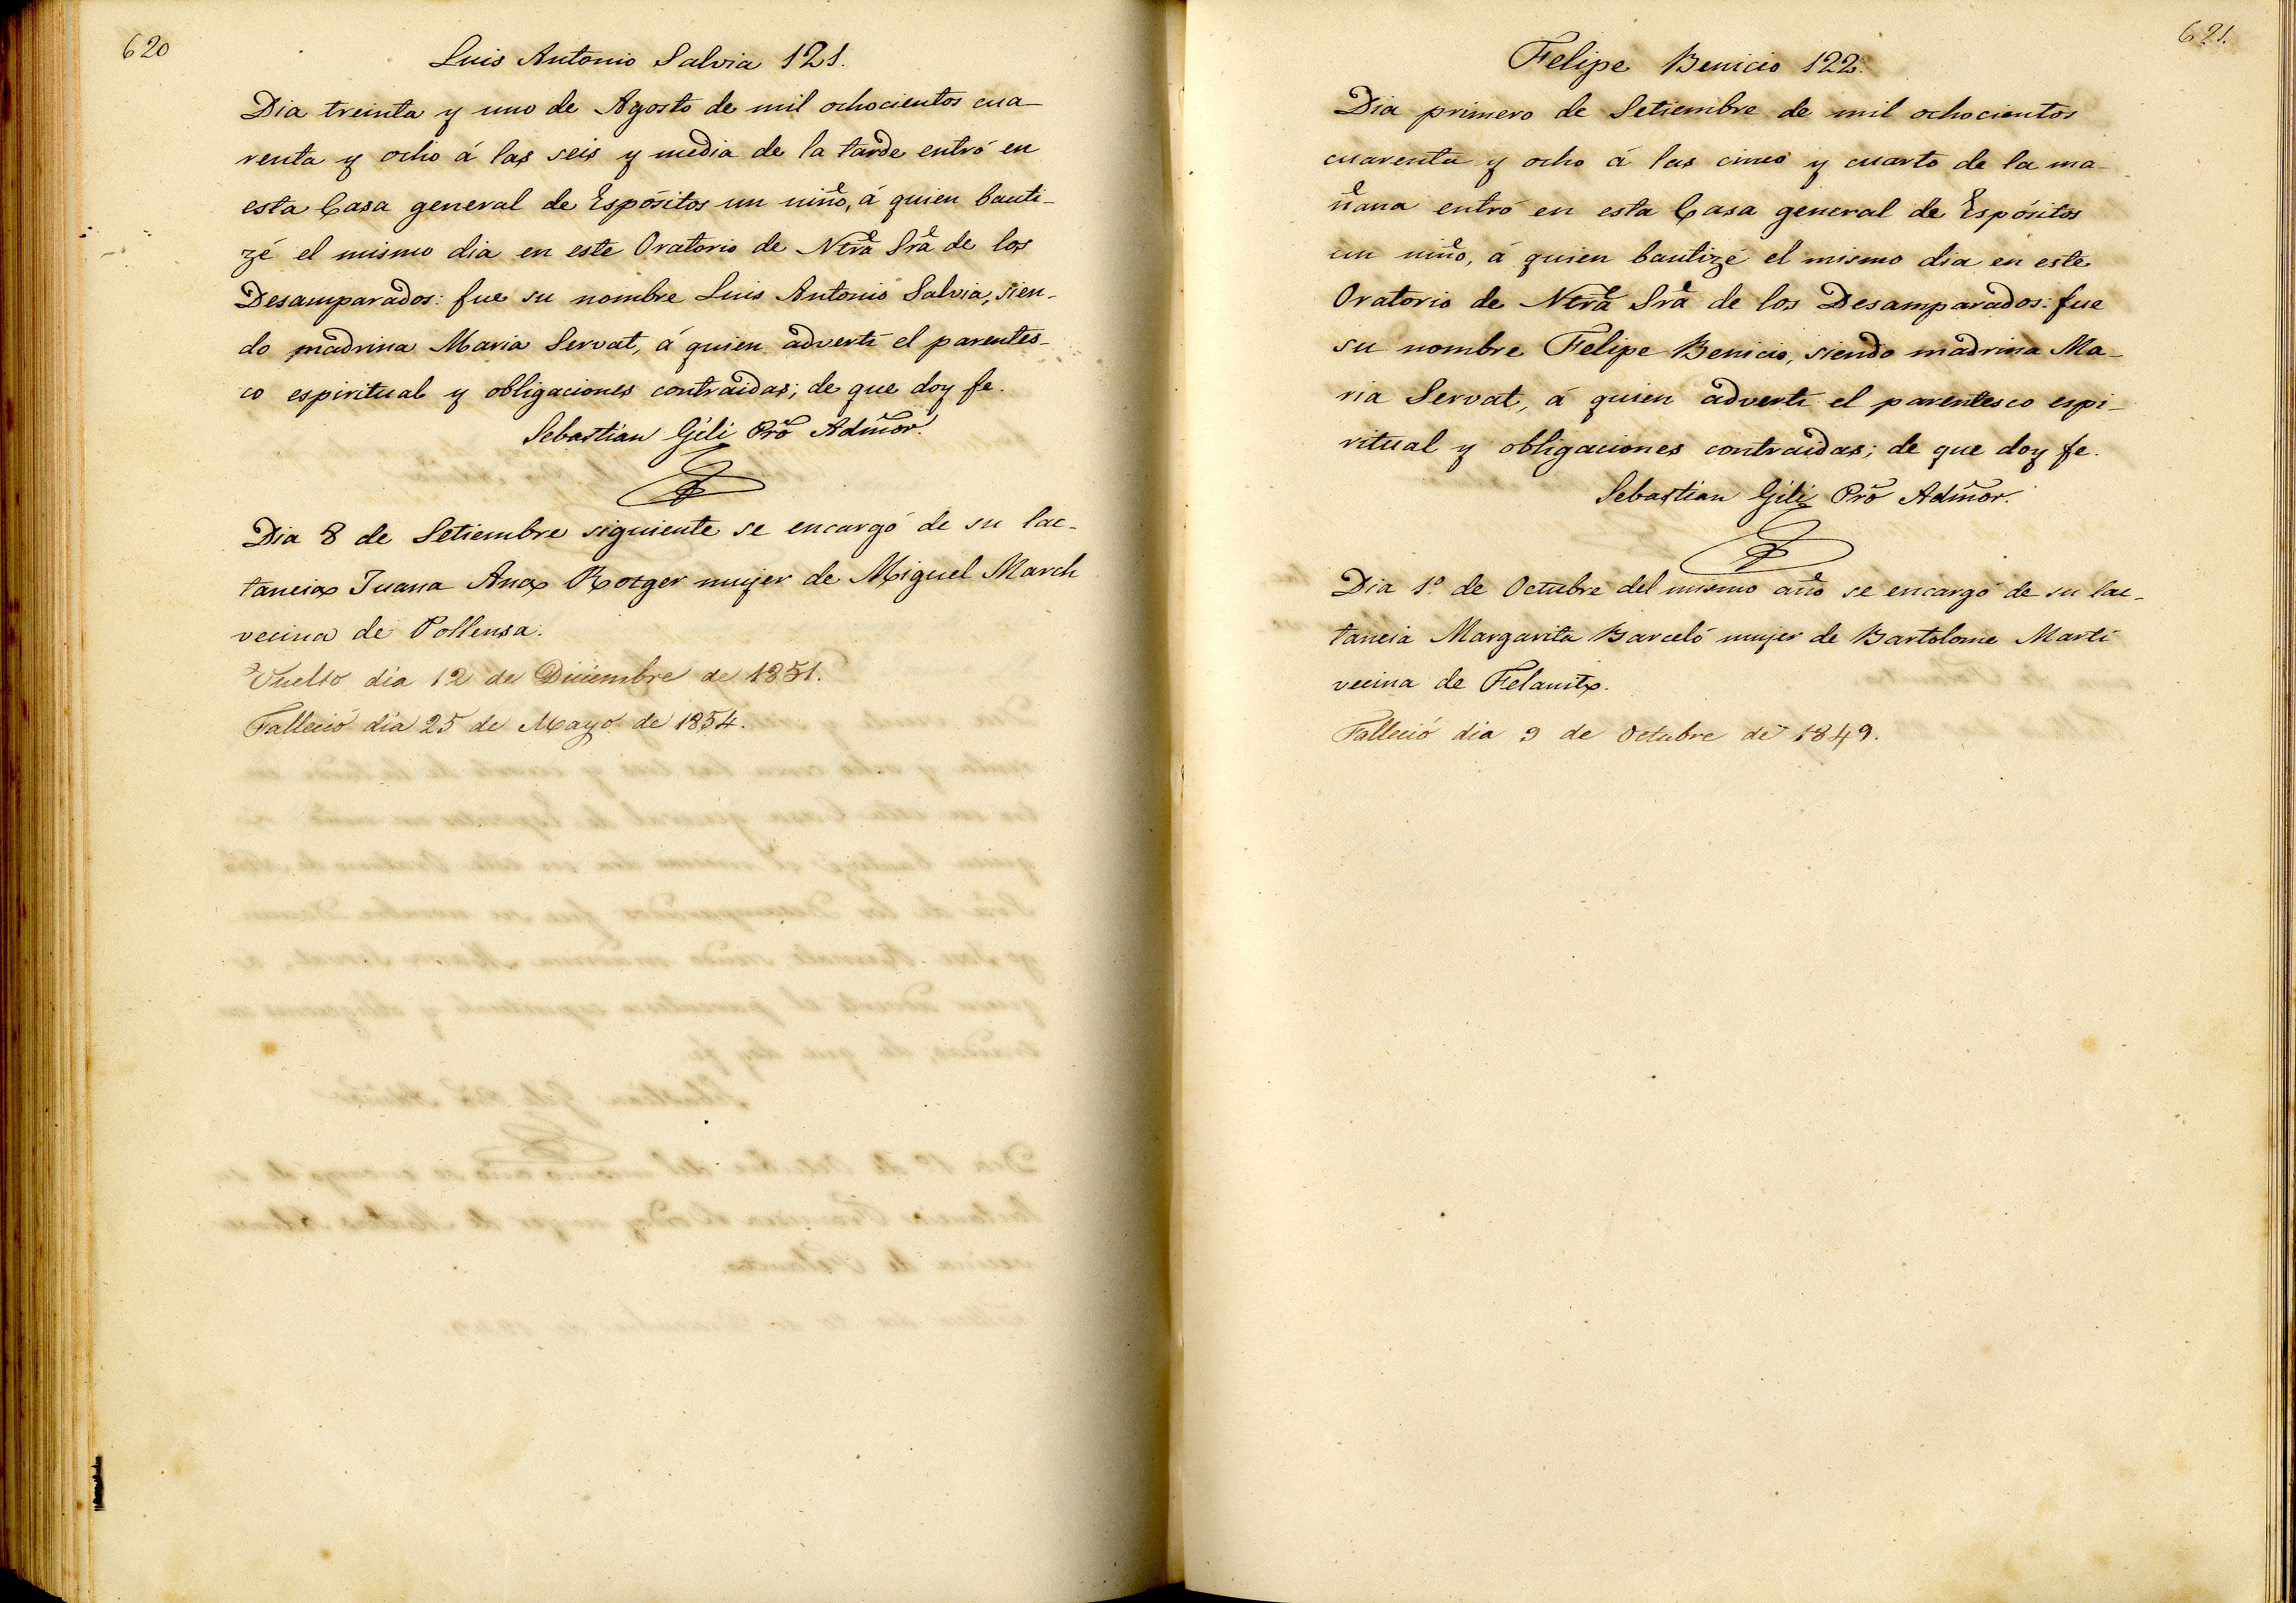 620
Luis Antonio Salvia 121.
Dia treinta y uno de Agosto de mil ochocientos cua-
renta y ocho á las seis y media de la tarde entró en
esta Casa general de Espósitos un niño, á quien bauti-
zé el mismo dia en este Oratorio de Ntrã Srã de los
Desamparados: fue su nombre Luis Antonio Salvia, sien-
do madrina Maria Servat, á quien advertí el parentes-
co espiritual y obligaciones contraidas; de que doy fe.
Sebastian Gili Prõ Admõr.
Dia 8 de Setiembre siguiente se encargó de su lac-
tancia Juana Ana Rotger mujer de Miguel March
vecina de Pollensa.
Vuelto dia 12 de Diciembre de 1851.
Falleció dia 25 de Mayo de 1854.
621.
Felipe Benicio 122.
Dia primero de Setiembre de mil ochocientos
cuarenta y ocho á las cinco y cuarto de la ma-
ñana entró en esta Casa general de Espósitos
un niño, á quien bautizé el mismo dia en este
Oratorio de Ntrã Srã de los Desamparados: fue
su nombre Felipe Benicio, siendo madrina Ma-
ria Servat, á quien advertí el parentesco espi-
ritual y obligaciones contraidas; de que doy fe.
Sebastian Gili Prõ Admõr.
Dia 1º de Octubre del mismo año se encargó de su lac-
tancia Margarita Barceló mujer de Bartolome Martí
vecina de Felanitx.
Falleció dia 9 de Octubre de 1849.